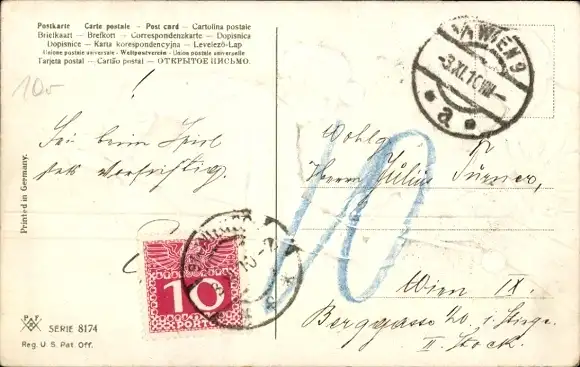 Postkarte — Carte postale — Post card — Cartolina postale
Briefkaart — Brefkort — Correspondenzkarte — Dopisnica
Dopisnice — Karta korespondencyjna — Levelező-Lap
Unione postale universale - Weltpostverein - Union postale universelle
Tarjeta postal — Cartão postal — ОТКРЫТОЕ ПИСЬМО.
10-
!
Sei beim Spiel
vorsichtig.
Printed in Germany.
WIEN 9
-3.XI.10
* a *
Wohlg
Herrn Julius
Wien IX.
Berggasse 20, 1. Stiege
II. Stock.
10
10
PORTO
P F B
SERIE 8174
Reg. U. S. Pat. Off.